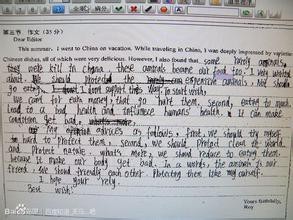 第三节 作文(25分)
Dear Editor
This summer, I went to China on vacation. While traveling in China, I was deeply impressed by varieties
Chinese dishes, all of which were very delicious. However, I also found that some rarely animals
were kill in China, these animals became our food too. I very worried
about. We should protected the expensive animals, not should
go eating. I don't support this way to start with,
We can't for earn money, that go hurt them, second, eating to much
lead to a bad health and influence humans health. It can make
condition get bad.
My advices as follows, first, we should try myself
hard to protect them, second, we should protect clean of world
and protect nature. what's more, we should reduce to eating them,
because it make our body get bad. In a words, the animals is our
friend. We should friendly each other. Protecting them like myself.
I hope your rely.
Best wish!
Yours faithfully,
Roy
Bai百度